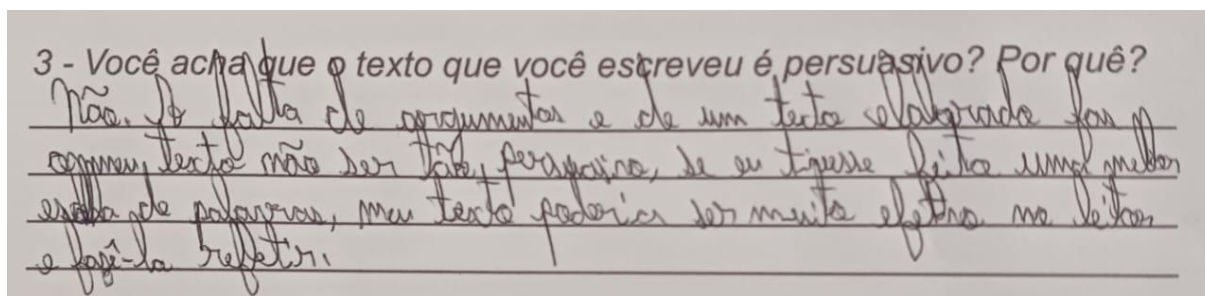 3 - Você acha que o texto que você escreveu é persuasivo? Por quê?
Não. A falta de argumentos e de um texto elaborado faz
meu texto não ser tão persuasivo, se eu tivesse feito uma melhor
escolha de palavras, meu texto poderia ser muito efetivo no leitor
e fazê-lo refletir.